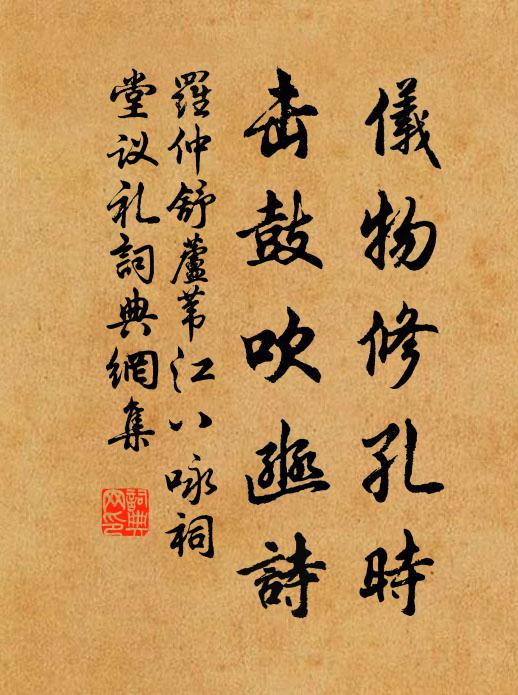 儀物修孔時
击鼓吹豳詩
羅仲舒蘆葦江八咏祠
堂议礼詞典網集
詞典网印